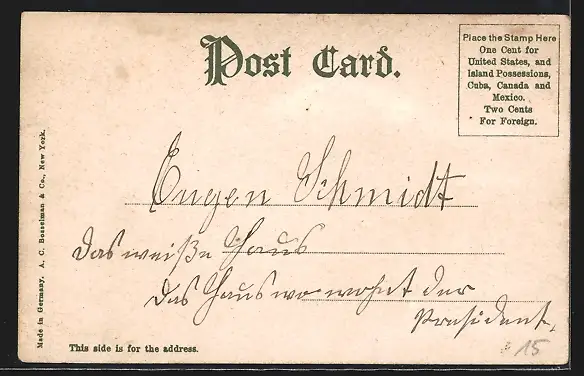 Post Card.
Place the Stamp Here
One Cent for
United States, and
Island Possessions,
Cuba, Canada and
Mexico.
Two Cents
For Foreign.
Eugen Schmidt
Das weiße Haus
Das Haus wo wohnt der
Präsident.
Made in Germany, A. C. Bosselman & Co., New York.
This side is for the address.
15